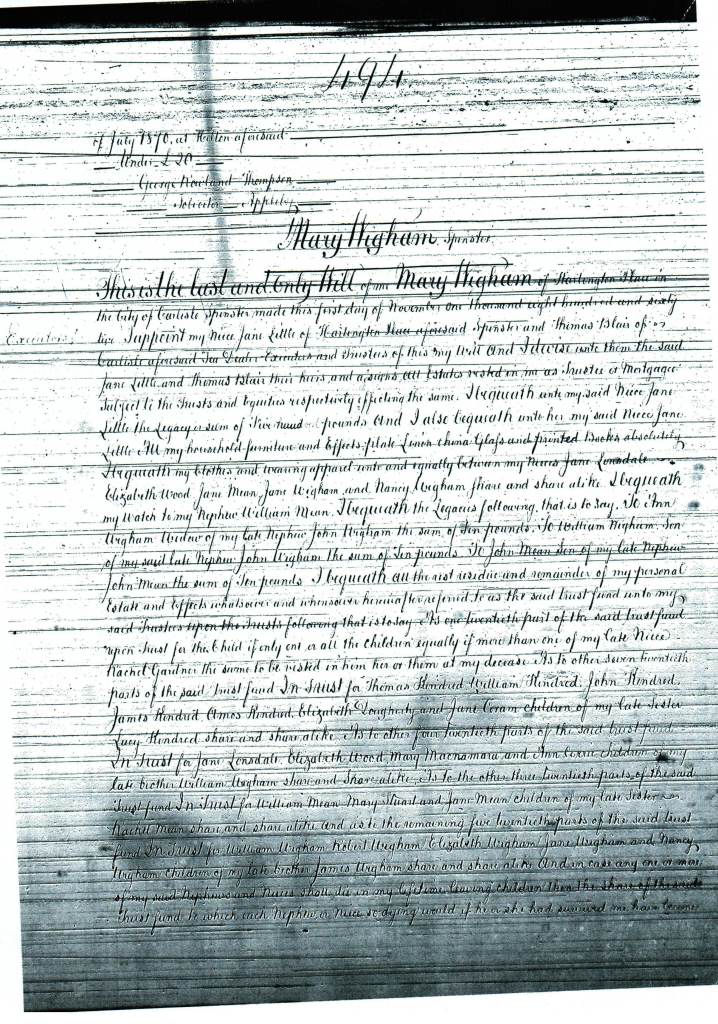 494
of July 1870, at Hilton aforesaid
Under £20
George Rowland Thompson
Solicitor Appleby
Mary Wigham Spinster
This is the last and Only Will of me Mary Wigham of Hartington Place in
the City of Carlisle Spinster made this first day of November one thousand eight hundred and sixty
Executors
five I appoint my Niece Jane Little of Hartington Place aforesaid Spinster and Thomas Blair of
Carlisle aforesaid Tea Dealer Executors and Trustees of this my Will And I devise unto them the said
Jane Little and Thomas Blair their heirs and assigns all Estates vested in me as Trustee or Mortgagee
Subject to the Trusts and Equities respectively affecting the same. I bequeath unto my said Niece Jane
Little the Legacy or sum of Five hundred pounds And I also bequeath unto her my said Niece Jane
Little All my household furniture and Effects plate Linen China Glass and printed Books absolutely
I bequeath my Clothes and wearing apparel unto and equally between my Nieces Jane Lonsdale
Elizabeth Wood, Jane Mean, Jane Wigham, and Nancy Wigham share and share alike. I bequeath
my Watch to my Nephew William Mean. I bequeath the Legacies following, that is to say, To Ann
Wigham Widow of my late Nephew John Wigham the sum of Ten pounds. To William Wigham, Son
of my said late Nephew John Wigham the sum of Ten pounds. To John Mean Son of my late Nephew
John Mean the sum of Ten pounds. I bequeath all the rest residue and remainder of my personal
Estate and Effects whatsoever and wheresoever hereinafter referred to as the said trust fund unto my
said Trustees upon the Trusts following that is to say. As one twentieth part of the said trust fund
upon Trust for the Child if only one or all the children equally if more than one of my late Niece
Rachel Gardner the same to be vested in him her or them at my decease As to other seven twentieth
parts of the said Trust fund In Trust for Thomas Kendred William Kendred, John Kendred,
James Kendred, Amos Kendred, Elizabeth Dougherty and Jane Coram children of my late Sister
Lucy Kendred share and share alike. As to other four twentieth parts of the said trust fund
In Trust for Jane Lonsdale, Elizabeth Wood, Mary Macnamara and Ann children of my
late brother William Wigham share and share alike. As to the other three twentieth parts of the said
Trust fund In Trust for William Mean Mary Stuart and Jane Mean children of my late Sister
Rachel Mean share and share alike And as to the remaining five twentieth parts of the said trust
fund In Trust for William Wigham Robert Wigham Elizabeth Wigham Jane Wigham and Nancy
Wigham Children of my late brother James Wigham share and share alike And in case any one or more
of my said Nephews and Nieces shall die in my lifetime leaving children then the share of the said
trust fund to which each Nephew or Niece so dying would if he or she had survived me have become